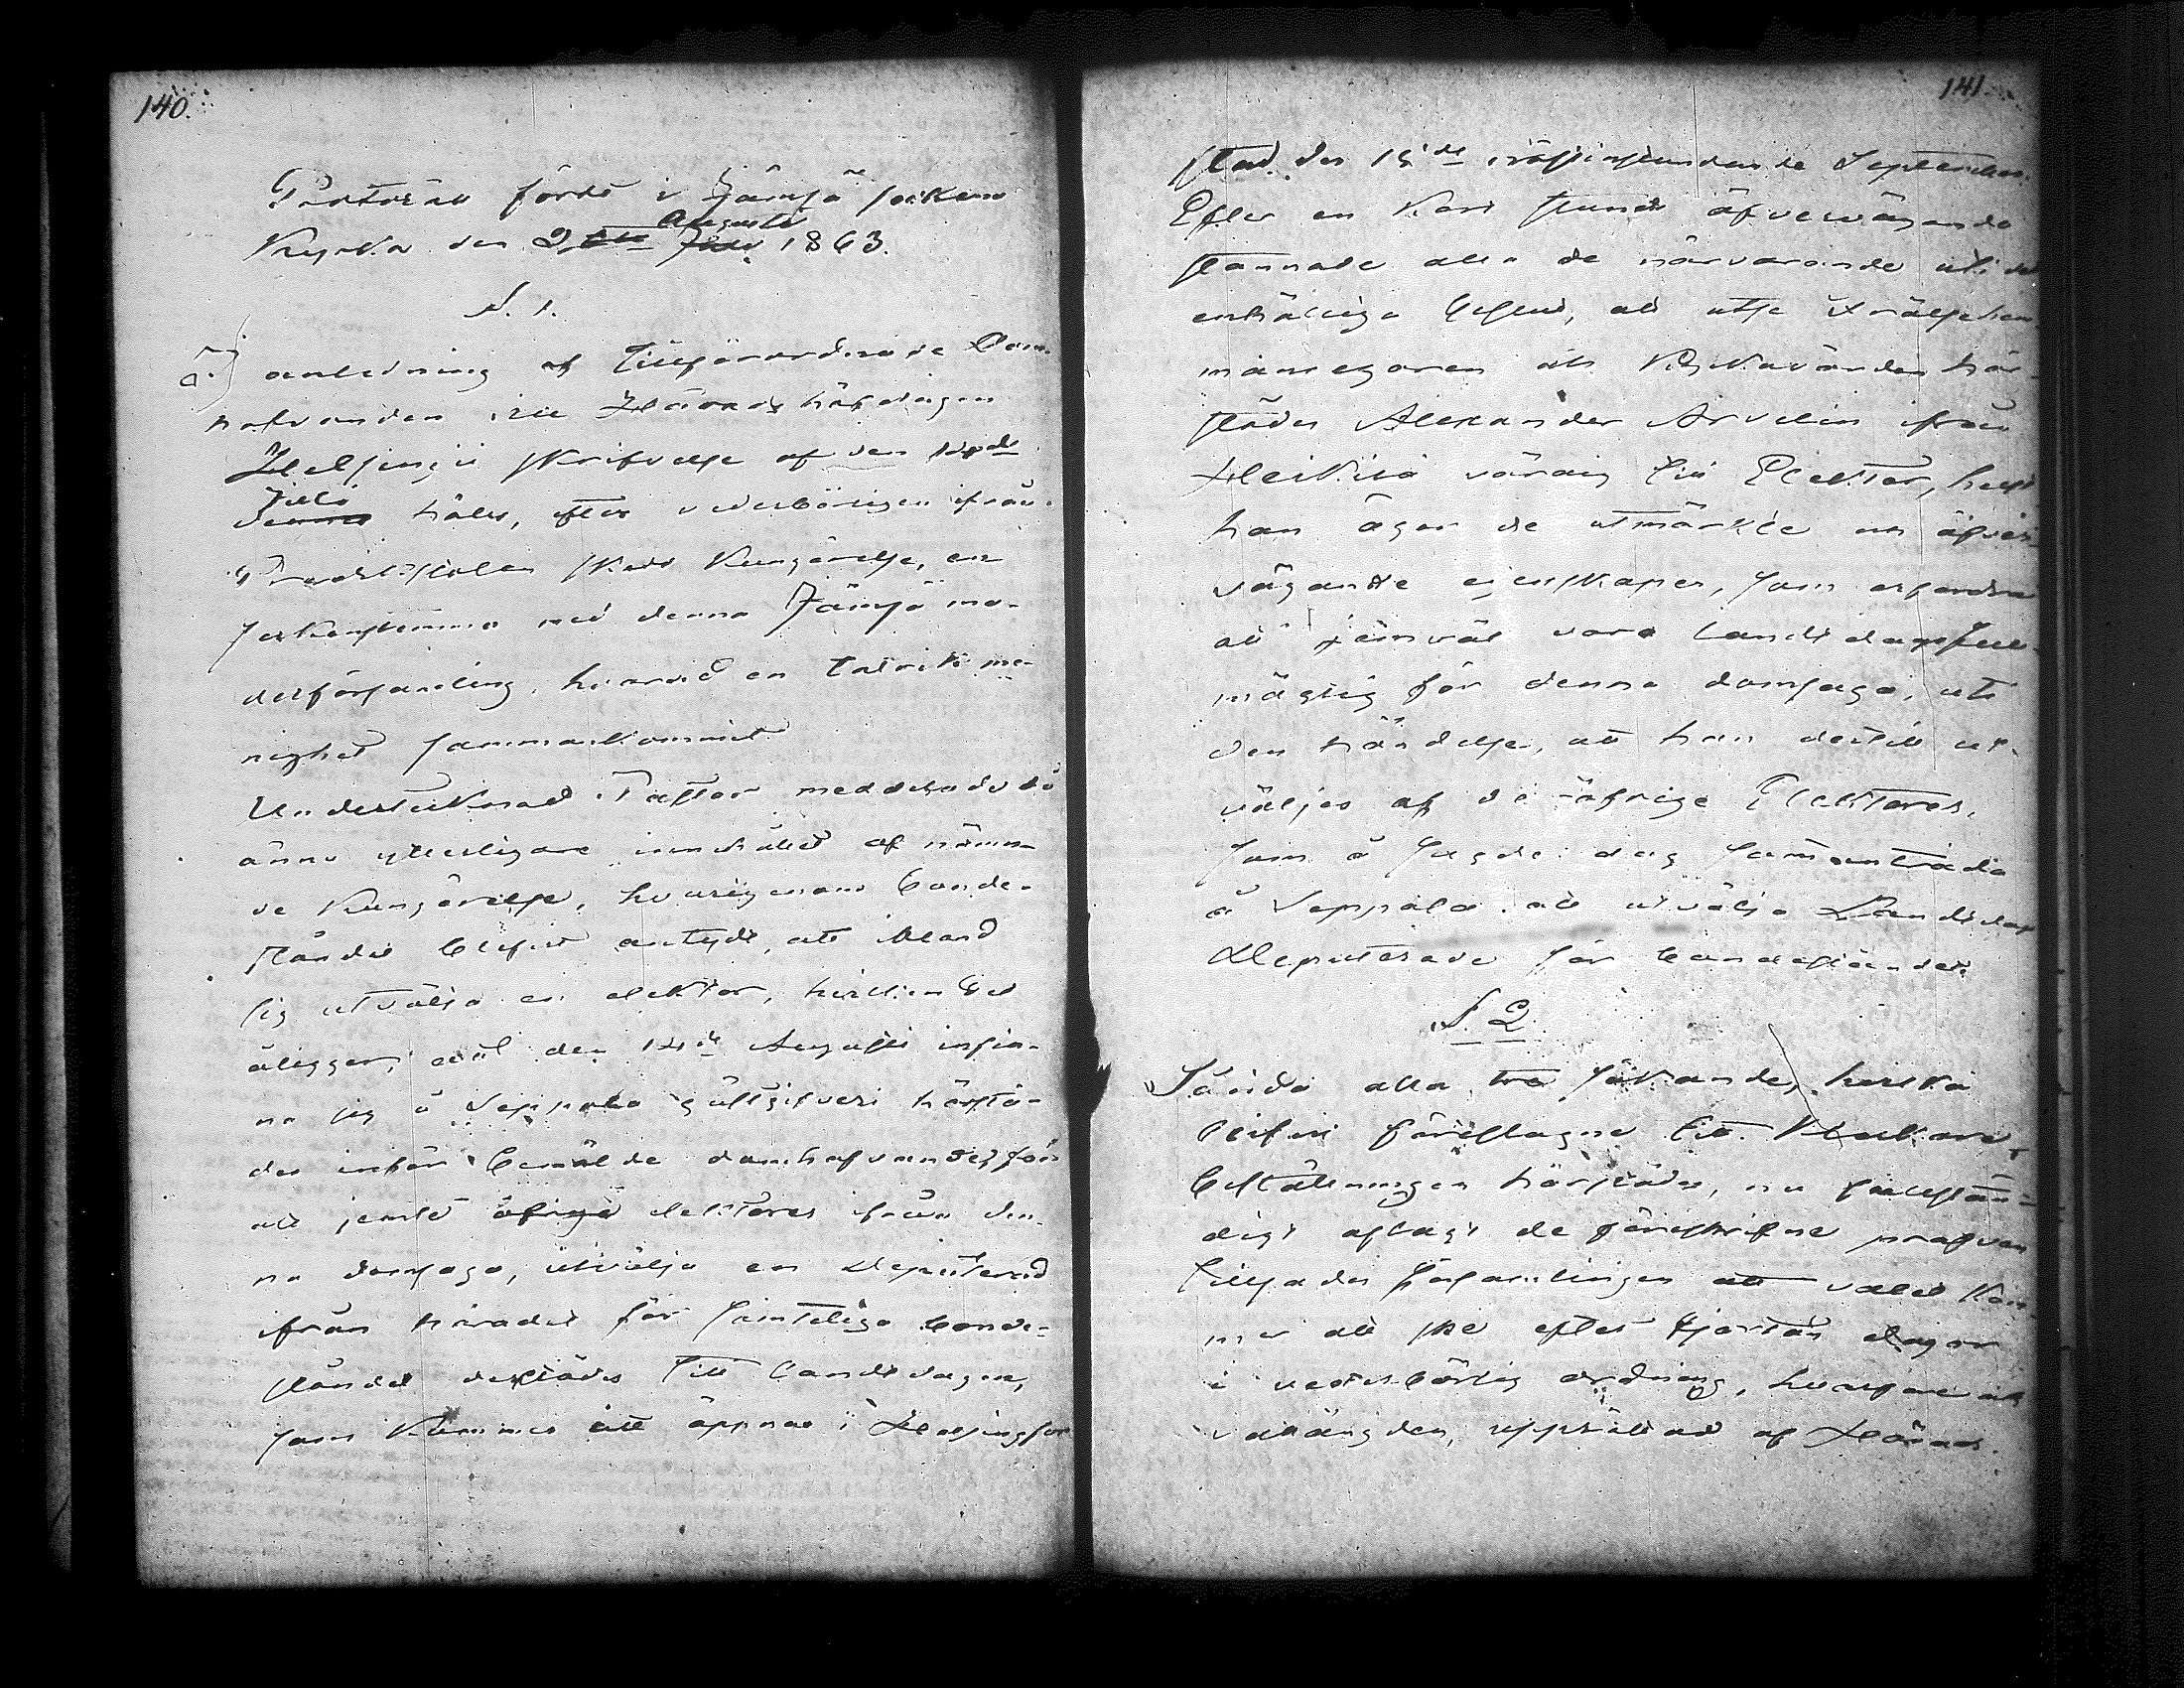 140.
Protocoll fördt i Jämsä socken
Kyrka den 2 Augusti 1863.
S. 1.
anledning af Tillförordnade Dom-
hafvanden Häradshöfdingen
skrifvelse af den
Juli hålls, efter vederbörligen ifrån
Predikstolen skedd Kungörelse, en
sockenstämma med denna Jämsä mo-
derförsamling, hvarvid en talrik me-
nighet sammankommit
Undertecknad Pastor meddelade då
ännu ytterligare innehållet af nämn-
de Kungörelse, hvarigenom bonde-
ståndet blifvit antydt, att ibland
sig utvälja en elektor, hvilken det
åligger, att den 14de Augusti infin-
na sig å Seppola gästgifveri härstä-
des inför bemälde domhafvande, för
att jemte öfrige elektores ifrån den-
na domsaga, utvälja en Deputerad
ifrån häradet för samtelige bonde-
ståndet derstädes till Landtdagen,
som kommer att öppnas i Helsingfors
141.
stad den 15de nästinstundande September.
Efter en kort stunds öfvervägande
stannade alla de närvarande uti det
enhälliga beslut, att utse
mannegaren och Kyrkovärden här-
städes Alexander Arvelin ifrån
Heikkilä värdig till Elektor, helst
han äger de utmärkte och öfver-
vägande egenskaper, som erfordras
att jemväl vara Landtdagsfull-
mägtig för denna domsaga, uti
den händelse, att han dertill ut-
väljes af de öfrige Elektores,
som å sagde dag sammanträda
å Seppola att utvälja Landtdags
Deputerade för bondeståndet.
S. 2
Sånda alla tre sökande, hvilka
blifvit föreslagne till Klockare
beställningen härstädes, nu fullstän-
digt aflagt de föreskrifne profven
tillsades Församlingen att valet kom-
mer att ske efter fjorton dagar
i vederbörlig ordning, hvarföre och
vallängden, upprättad af Härads-